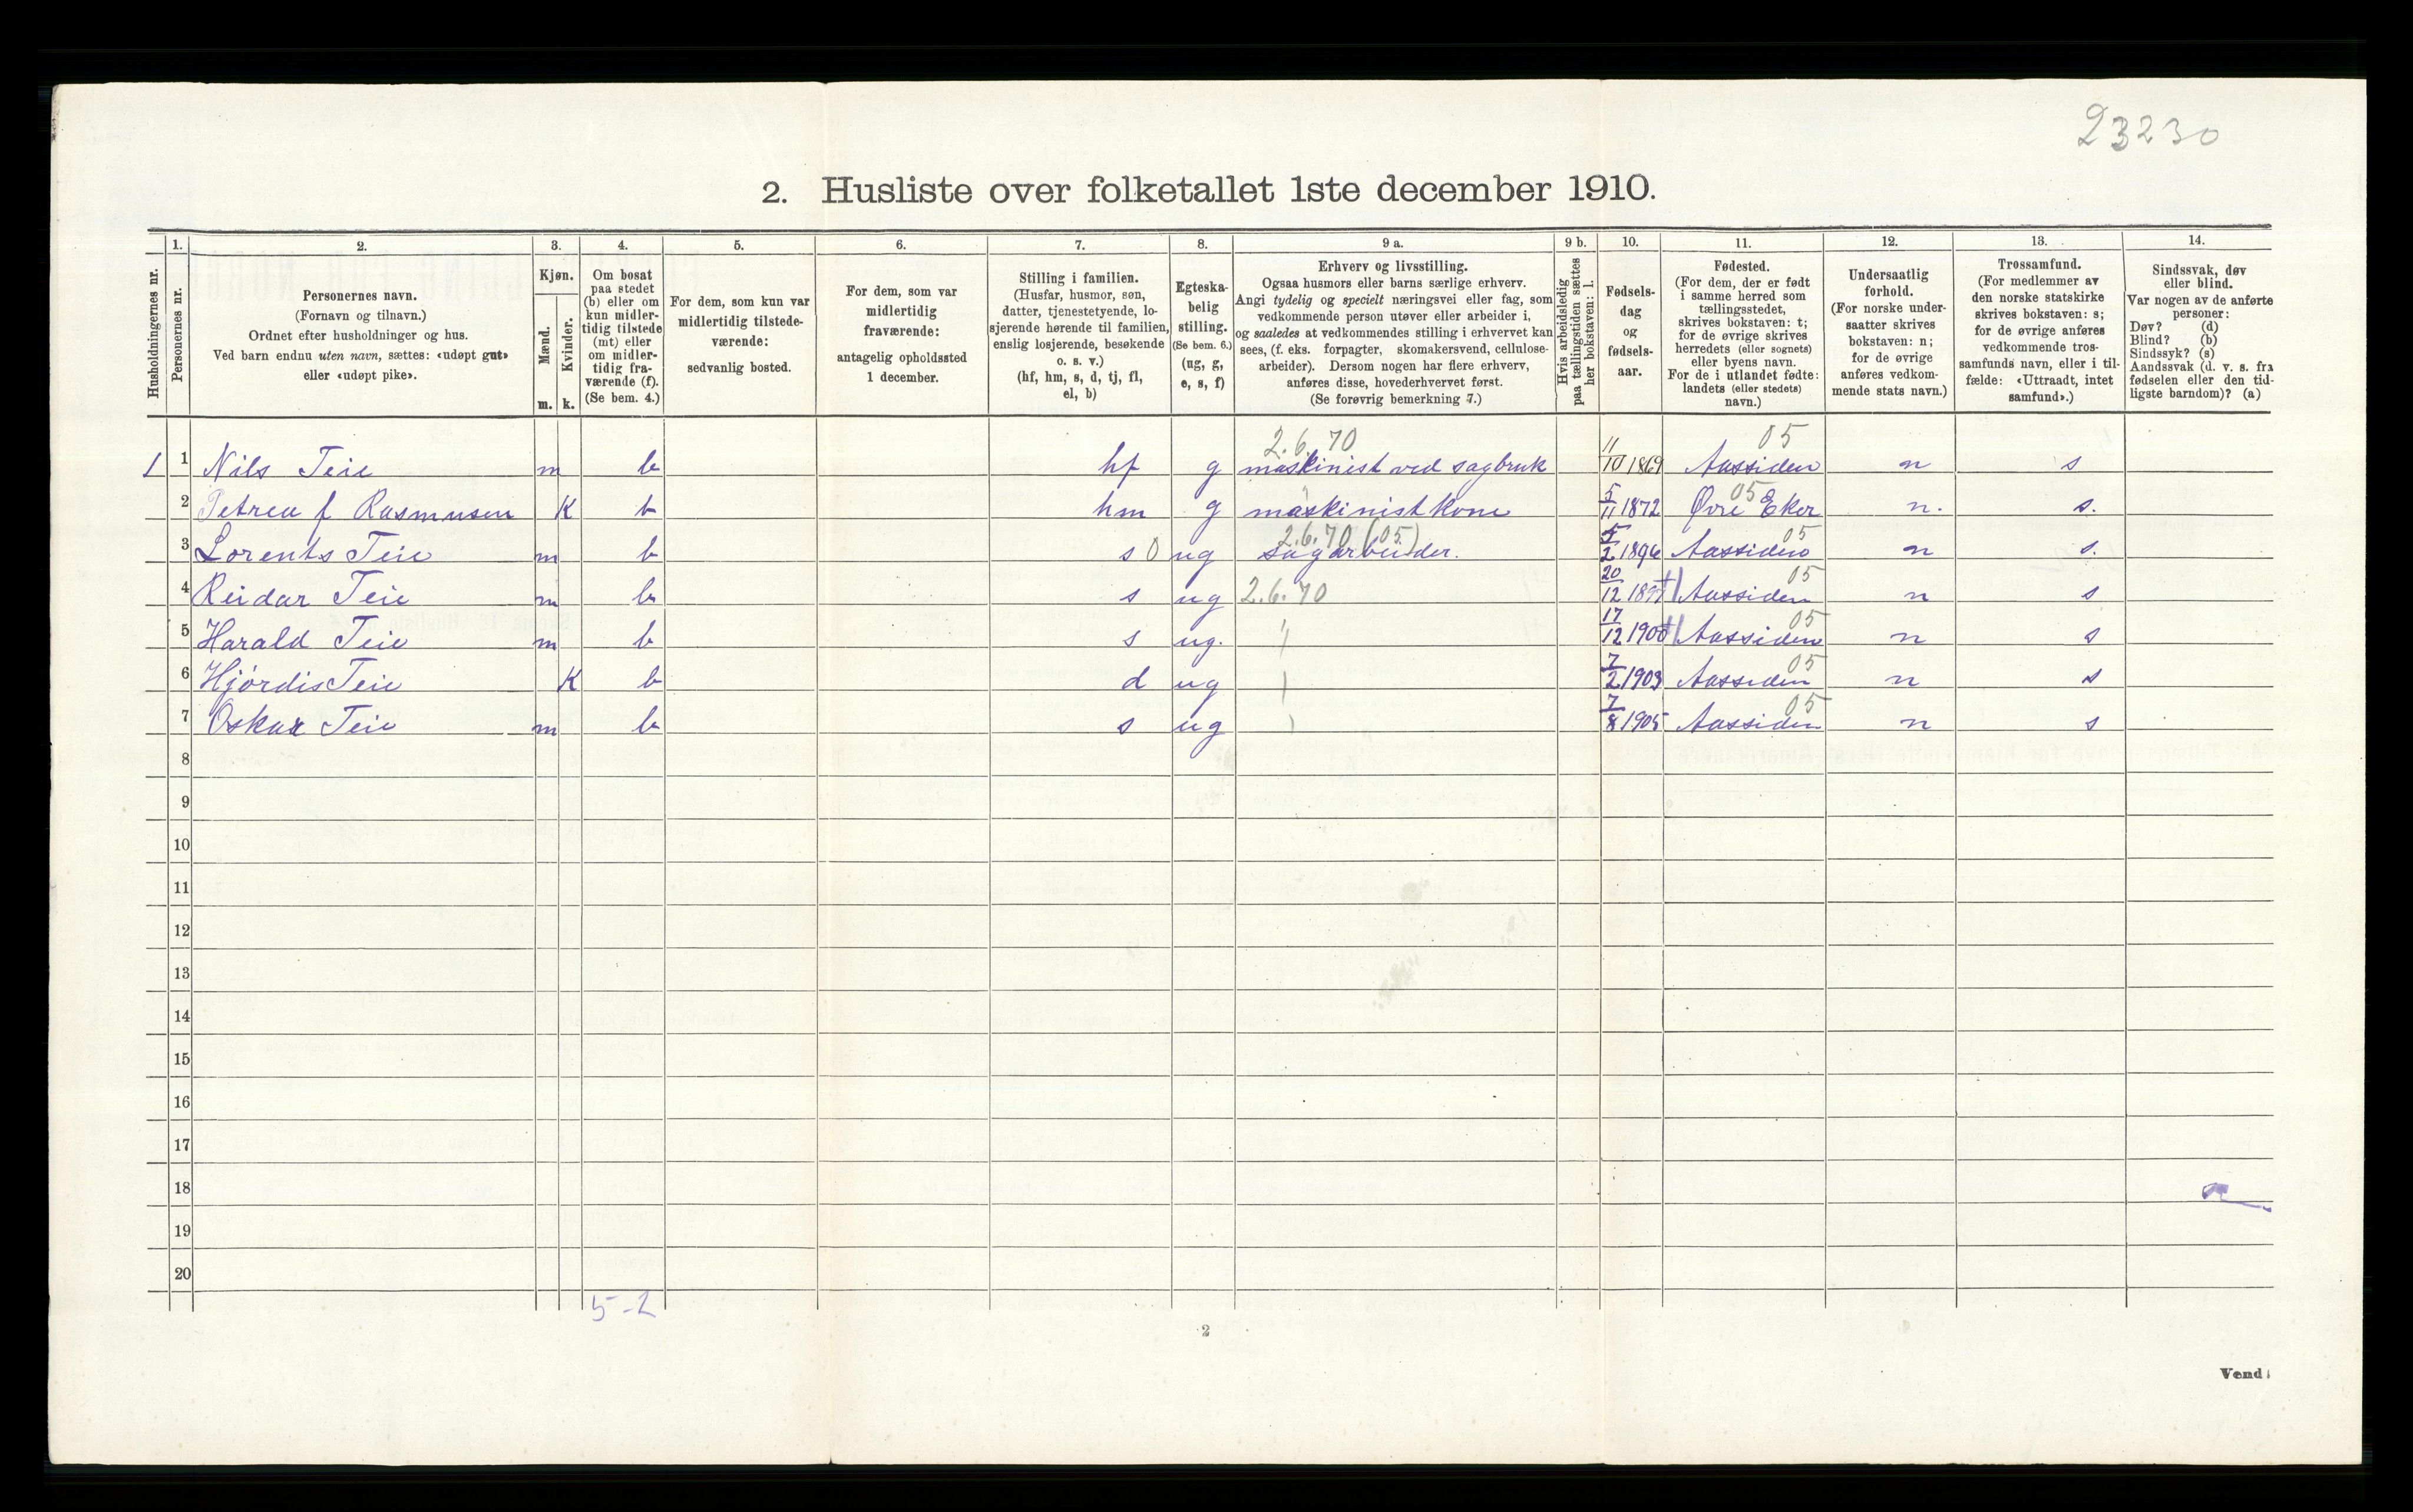 23230
2. Husliste over folketallet 1ste december 1910.
Husholdningernes nr.
1.
Personernes nr.
2.
Personernes navn.
(Fornavn og tilnavn.)
Ordnet efter husholdninger og hus.
Ved barn endnu uten navn, sættes: «udøpt gut»
eller «udøpt pike».
3.
Kjøn.
Mænd.
Kvinder.
m. k.
4.
Om bosat
paa stedet
(b) eller om
kun midler-
tidig tilstede
(mt) eller
om midler-
tidig fra-
værende (f).
(Se bem. 4.)
5.
For dem, som kun var
midlertidig tilstede-
værende:
sedvanlig bosted.
6.
For dem, som var
midlertidig
fraværende:
antagelig opholdssted
1 december.
7.
Stilling i familien.
(Husfar, husmor, søn,
datter, tjenestetyende, lo-
sjerende hørende til familien,
enslig losjerende, besøkende
o. s. v.)
(hf, hm, s, d, tj, fl,
el, b)
8.
Egteska-
belig
stilling.
(Se bem. 6.)
(ug, g,
e, s, f)
9 a.
Erhverv og livsstilling.
Ogsaa husmors eller barns særlige erhverv.
Angi tydelig og specielt næringsvei eller fag, som
vedkommende person utøver eller arbeider i,
og saaledes at vedkommendes stilling i erhvervet kan
sees, (f. eks. forpagter, skomakersvend, cellulose-
arbeider). Dersom nogen har flere erhverv,
anføres disse, hovederhvervet først.
(Se forøvrig bemerkning 7.)
9 b.
Hvis arbeidsledig
paa tællingstiden sættes
her bokstaven: l.
10.
Fødsels-
dag
og
fødsels-
aar.
11.
Fødested.
(For dem, der er født
i samme herred som
tællingsstedet,
skrives bokstaven: t;
for de øvrige skrives
herredets (eller sognets)
eller byens navn.
For de i utlandet fødte:
landets (eller stedets)
navn.)
12.
Undersaatlig
forhold.
(For norske under-
saatter skrives
bokstaven: n;
for de øvrige
anføres vedkom-
mende stats navn.)
13.
Trossamfund.
(For medlemmer av
den norske statskirke
skrives bokstaven: s;
for de øvrige anføres
vedkommende tros-
samfunds navn, eller i til-
fælde: «Uttraadt, intet
samfund».)
14.
Sindssvak, døv
eller blind.
Var nogen av de anførte
personer:
Døv? (d)
Blind? (b)
Sindssyk? (s)
Aandssvak (d. v. s. fra
fødselen eller den tid-
ligste barndom)? (a)
2.6.70 05
1 1 Nils Teie m b hf g maskinist ved sagbruk 11/10 1869 Aassiden n s
05
2 Petrea f Rasmusen K b hm g maskinist kone 5/11 1872 Øvre Eker n. s.
2.6.70 (05) 05
3 Lorents Teie m b s 0 ug sagarbeider. 5/2 1896 Aassiden n s.
05
4 Reidar Teie m b s ug 2.6.70 20/12 Aassiden n s
05
5 Harald Teie m b s ug. 17/12 1900 Aassiden n s
05
6 Hjørdis Teie K b d ug 7/2 1903 Aassiden n s
05
7 Oskar Teie m b s ug 7/8 1905 Aassiden n s
8
9
10
11
12
13
14
15
16
17
18
19
20
5-2
2
Vend!